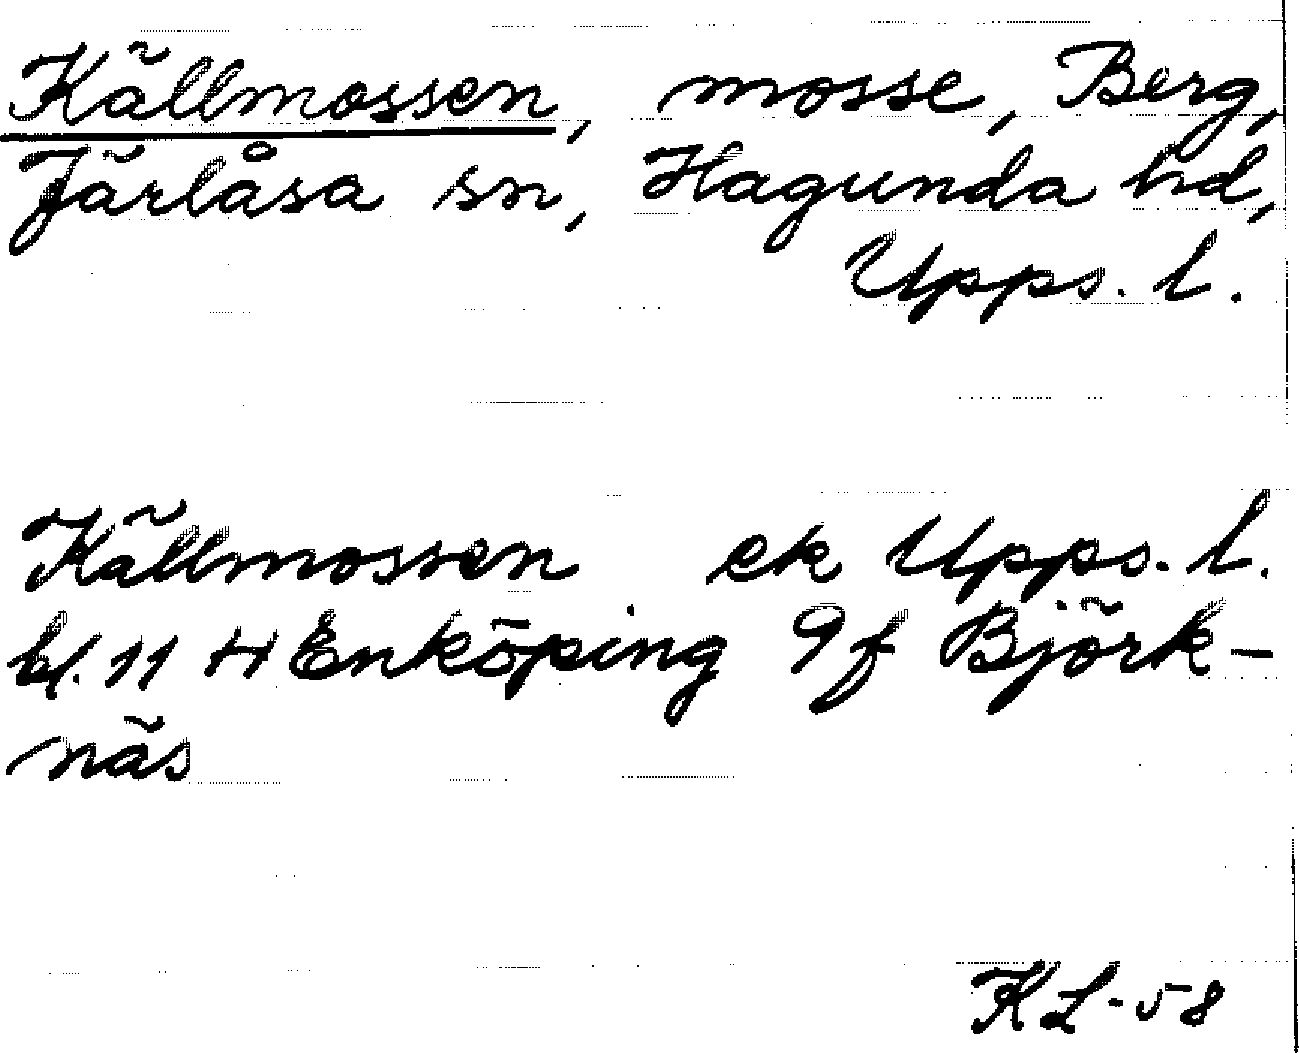 Källmossen, mosse, Berg,
Järlåsa sn, Hagunda hd,
Upps. l.
Källmossen ek Upps. l.
bl. 11 H Enköping 9f Björk-
näs
KL-58